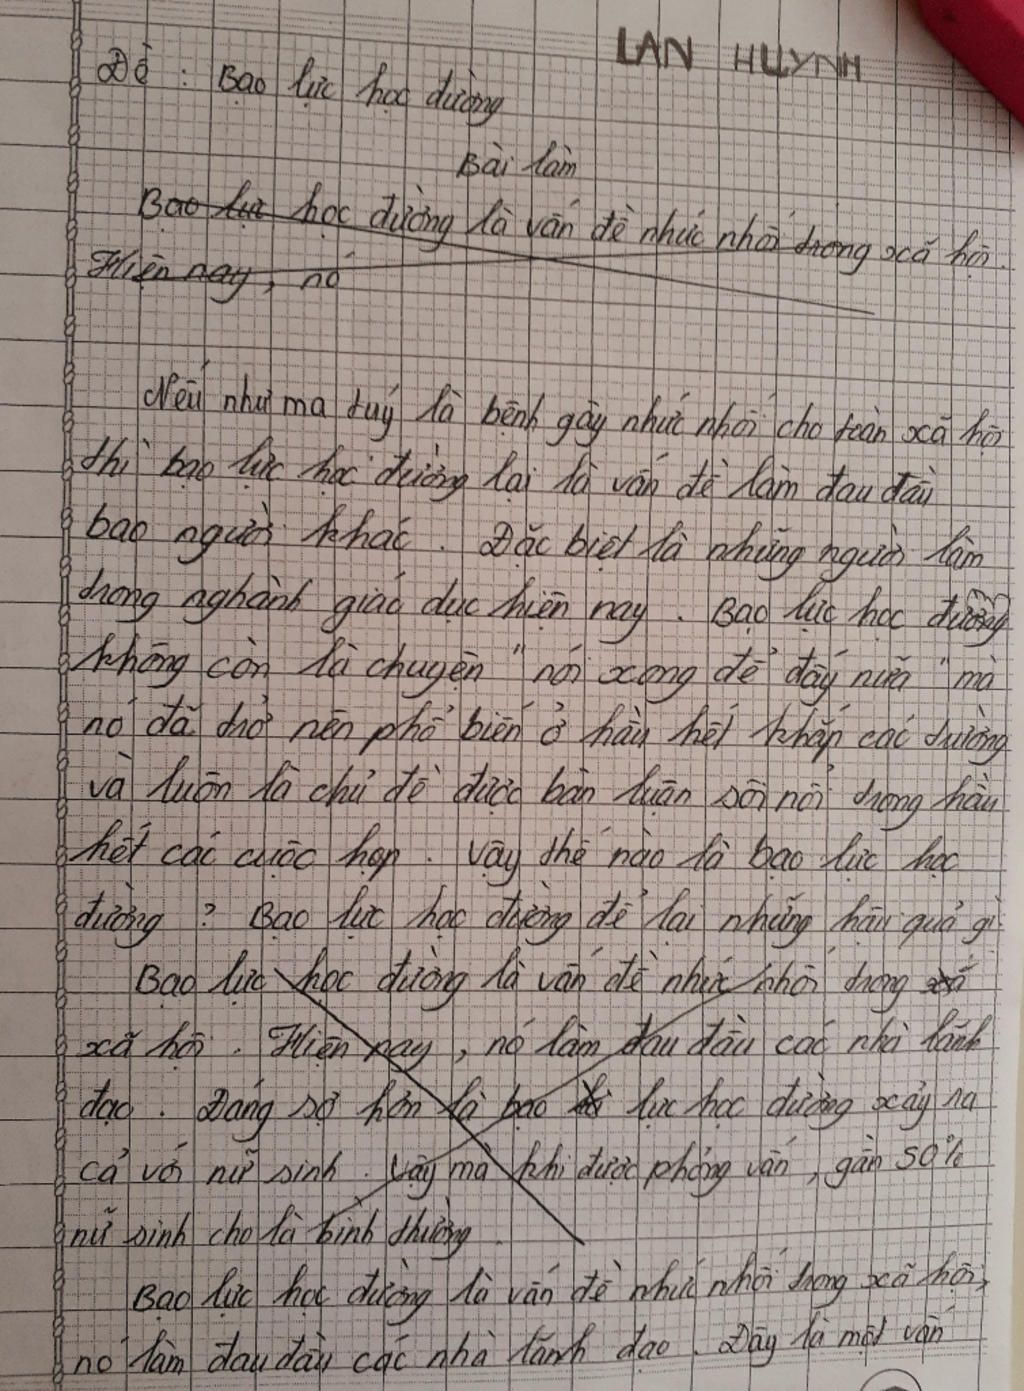 LAN HUYNH
Đề : Bạo lực học đường
Bài làm
Bạo lực học đường là vấn đề nhức nhối trong xã hội.
Hiện nay, nó
Nếu như ma tuý là bệnh gây nhức nhối cho toàn xã hội
thì bạo lực học đường lại là vấn đề làm đau đầu
bao người khác. Đặc biệt là những người làm
trong nghành giáo dục hiện nay. Bạo lực học đường
không còn là chuyện "nói xong để đấy nữa" mà
nó đã trở nên phổ biến ở hầu hết khắp các trường
và luôn là chủ đề được bàn luận sôi nổi trong hầu
hết các cuộc họp. Vậy thế nào là bạo lực học
đường ? Bạo lực học đường để lại những hậu quả gì
Bạo lực học đường là vấn đề nhức nhối trong
xã hội. Hiện nay, nó làm đau đầu các nhà lãnh
đạo. Đáng sợ hơn là bạo lực học đường xảy ra
cả với nữ sinh. Vậy mà khi được phỏng vấn, gần 50%
nữ sinh cho là bình thường.
Bạo lực học đường là vấn đề nhức nhối trong xã hội,
nó làm đau đầu các nhà lãnh đạo. Đây là một vấn